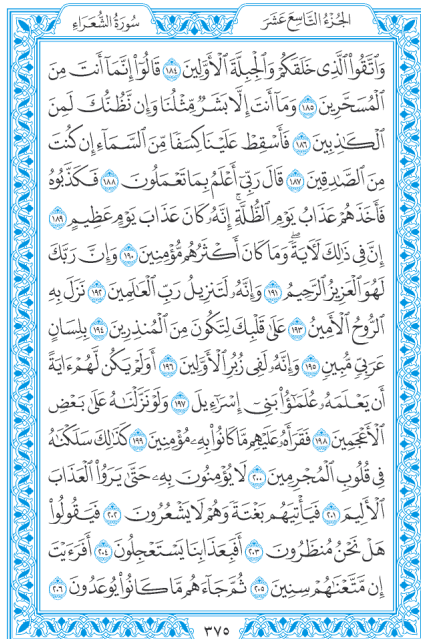 الجُزْءُ التَّاسِعَ عَشَرَ
سُورَةُ الشُّعَرَاءِ
وَاتَّقُوا الَّذِي خَلَقَكُمْ وَالْجِبِلَّةَ الْأَوَّلِينَ ١٨٤ قَالُوا إِنَّمَا أَنتَ مِنَ
الْمُسَحَّرِينَ ١٨٥ وَمَا أَنتَ إِلَّا بَشَرٌ مِّثْلُنَا وَإِن نَّظُنُّكَ لَمِنَ
الْكَاذِبِينَ ١٨٦ فَأَسْقِطْ عَلَيْنَا كِسَفًا مِّنَ السَّمَاءِ إِن كُنتَ
مِنَ الصَّادِقِينَ ١٨٧ قَالَ رَبِّي أَعْلَمُ بِمَا تَعْمَلُونَ ١٨٨ فَكَذَّبُوهُ
فَأَخَذَهُمْ عَذَابُ يَوْمِ الظُّلَّةِ إِنَّهُ كَانَ عَذَابَ يَوْمٍ عَظِيمٍ ١٨٩
إِنَّ فِي ذَٰلِكَ لَآيَةً وَمَا كَانَ أَكْثَرُهُم مُّؤْمِنِينَ ١٩٠ وَإِنَّ رَبَّكَ
لَهُوَ الْعَزِيزُ الرَّحِيمُ ١٩١ وَإِنَّهُ لَتَنزِيلُ رَبِّ الْعَالَمِينَ ١٩٢ نَزَلَ بِهِ
الرُّوحُ الْأَمِينُ ١٩٣ عَلَىٰ قَلْبِكَ لِتَكُونَ مِنَ الْمُنذِرِينَ ١٩٤ بِلِسَانٍ
عَرَبِيٍّ مُّبِينٍ ١٩٥ وَإِنَّهُ لَفِي زُبُرِ الْأَوَّلِينَ ١٩٦ أَوَلَمْ يَكُن لَّهُمْ آيَةً
أَن يَعْلَمَهُ عُلَمَٰؤُا بَنِي إِسْرَائِيلَ ١٩٧ وَلَوْ نَزَّلْنَاهُ عَلَىٰ بَعْضِ
الْأَعْجَمِينَ ١٩٨ فَقَرَأَهُ عَلَيْهِم مَّا كَانُوا بِهِ مُؤْمِنِينَ ١٩٩ كَذَٰلِكَ سَلَكْنَاهُ
فِي قُلُوبِ الْمُجْرِمِينَ ٢٠٠ لَا يُؤْمِنُونَ بِهِ حَتَّىٰ يَرَوُا الْعَذَابَ
الْأَلِيمَ ٢٠١ فَيَأْتِيَهُم بَغْتَةً وَهُمْ لَا يَشْعُرُونَ ٢٠٢ فَيَقُولُوا
هَلْ نَحْنُ مُنظَرُونَ ٢٠٣ أَفَبِعَذَابِنَا يَسْتَعْجِلُونَ ٢٠٤ أَفَرَأَيْتَ
إِن مَّتَّعْنَاهُمْ سِنِينَ ٢٠٥ ثُمَّ جَاءَهُم مَّا كَانُوا يُوعَدُونَ ٢٠٦
٣٧٥